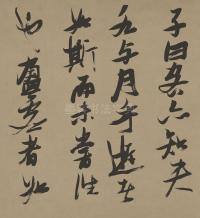 子曰客亦知夫
水与月乎逝者
如斯而未嘗往
也盈虛者如